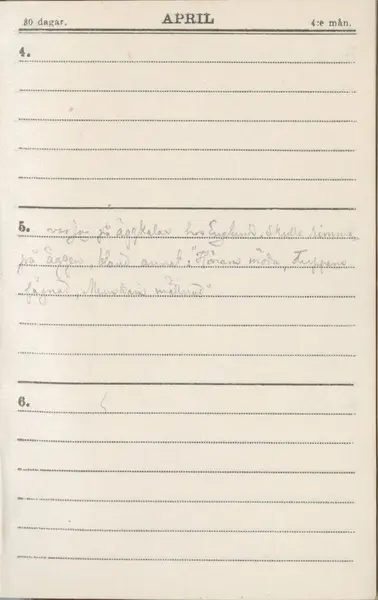 30 dagar. APRIL 4:e mån.
4.
5. var jag på äggkalas hos Englund. skulle rimma
på äggen, bland annat: "Hönans möda, Tuppens
fägnad, Menskans mättnad"
6.